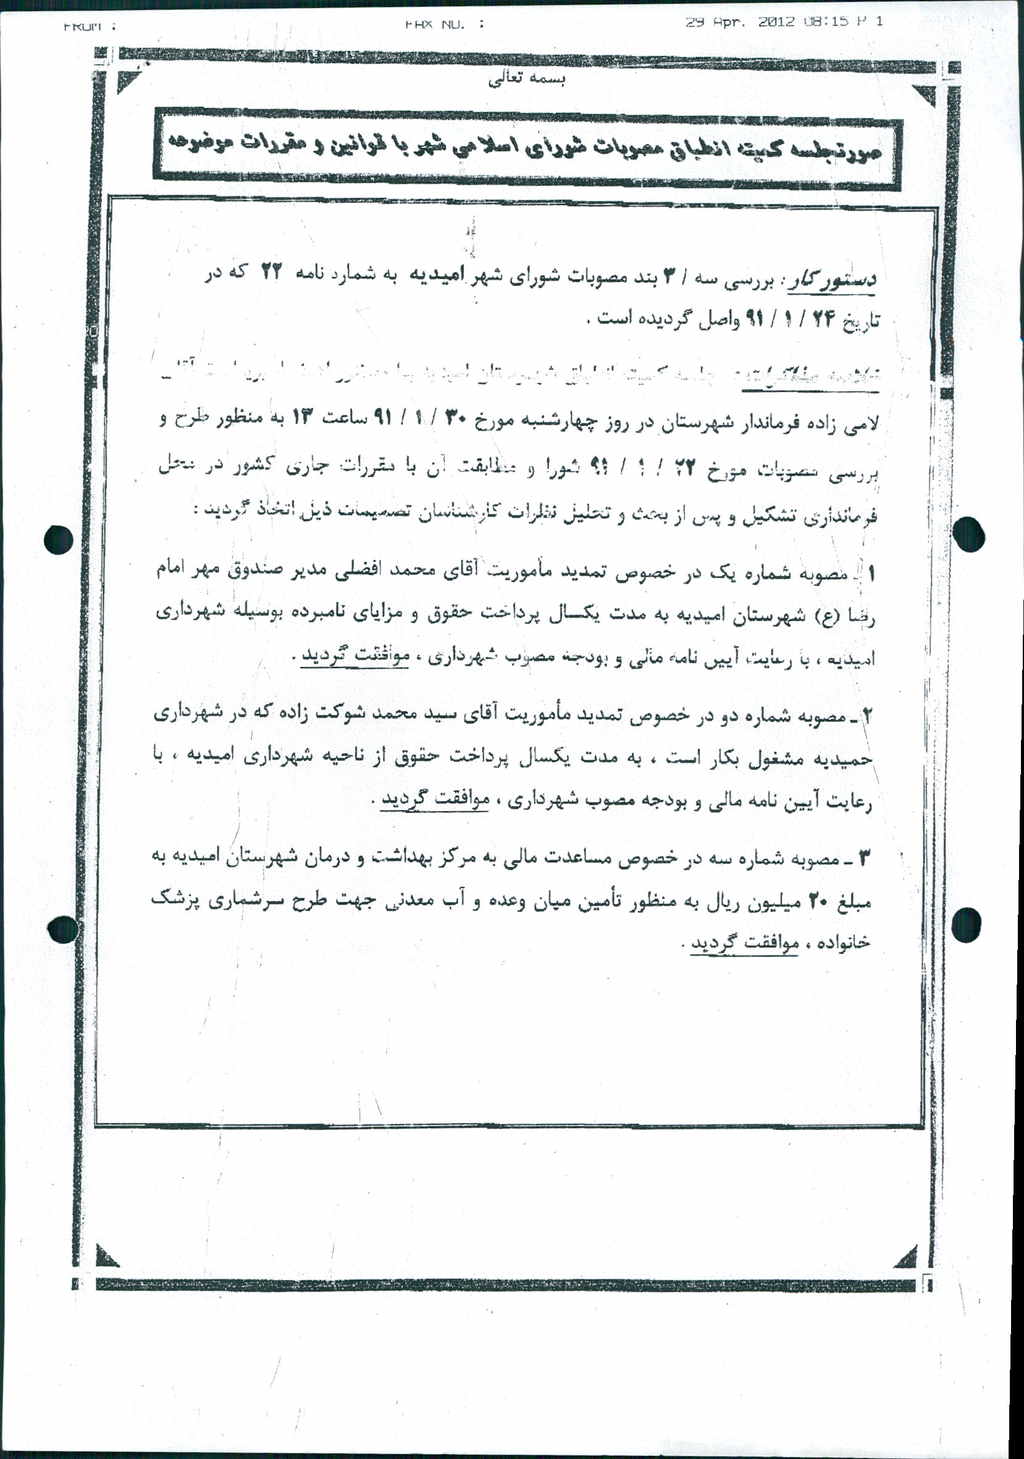 FROM :
FAX NO. :
29 Apr. 2012 08:15 P 1
بسمه تعالی
صورتجلسه کمیته انطباق مصوبات شورای اسلامی شهر با قوانین و مقررات موضوعه
دستور کار : بررسی سه / ۳ بند مصوبات شورای شهر امیدیه به شماره نامه ۲۲ که در
تاریخ ۲۴ / ۱ / ۹۱ واصل گردیده است .
خلاصه مذاکرات : جلسه کمیته انطباق شهرستان آقای
لامی زاده فرماندار شهرستان در روز چهارشنبه مورخ ۳۰ / ۱ / ۹۱ ساعت ۱۳ به منظور طرح و
بررسی مصوبات مورخ ۲۲ / ۱ / ۹۱ شورا و مطابقت آن با مقررات جاری کشور در محل
فرمانداری تشکیل و پس از بحث و تحلیل نظرات کارشناسان تصمیمات ذیل اتخاذ گردید :
۱ ـ مصوبه شماره یک در خصوص تمدید مأموریت آقای محمد افضلی مدیر صندوق مهر امام
رضا (ع) شهرستان امیدیه به مدت یکسال پرداخت حقوق و مزایای نامبرده بوسیله شهرداری
امیدیه ، با رعایت آیین نامه مالی و بودجه مصوب شهرداری ، موافقت گردید .
۲ ـ مصوبه شماره دو در خصوص تمدید مأموریت آقای سید محمد شوکت زاده که در شهرداری
حمیدیه مشغول بکار است ، به مدت یکسال پرداخت حقوق از ناحیه شهرداری امیدیه ، با
رعایت آیین نامه مالی و بودجه مصوب شهرداری ، موافقت گردید .
۳ ـ مصوبه شماره سه در خصوص مساعدت مالی به مرکز بهداشت و درمان شهرستان امیدیه به
مبلغ ۲۰ میلیون ریال به منظور تأمین میان وعده و آب معدنی جهت طرح سرشماری پزشک
خانواده ، موافقت گردید .